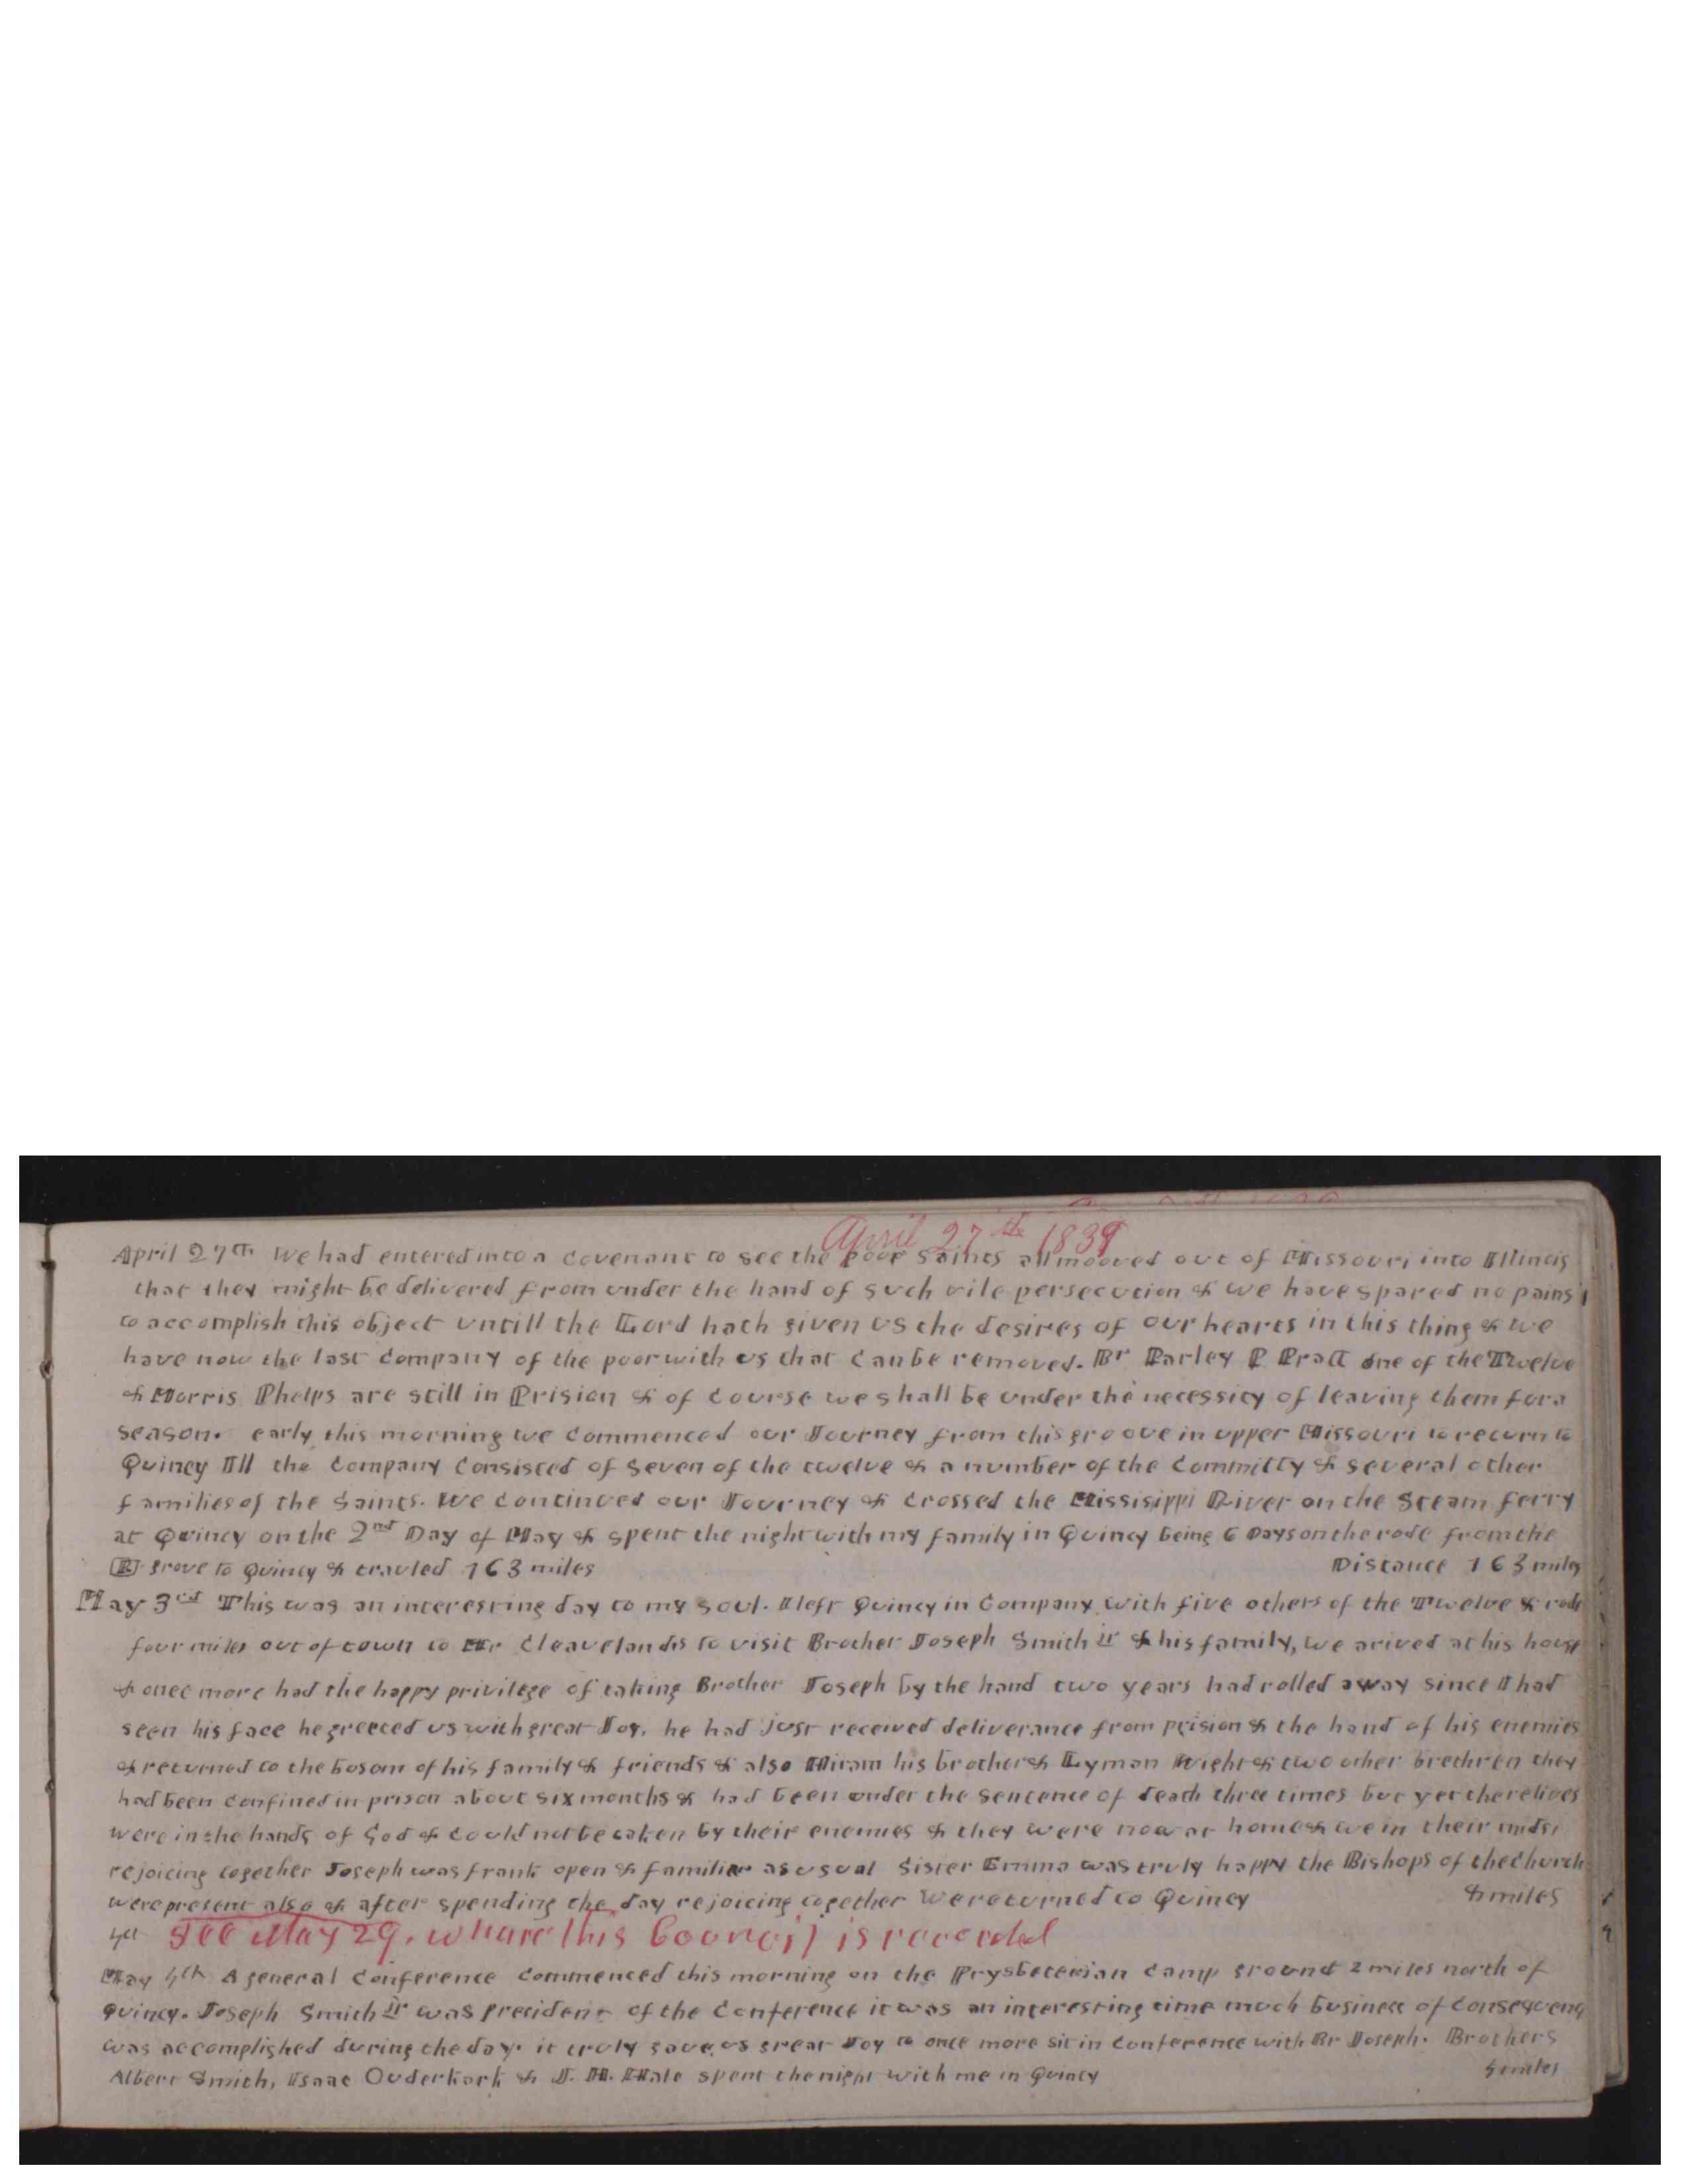 April 27th 1839
April 27th We had entered into a covenant to see the poor Saints all mooved out of Missouri into Illinois
that they might be delivered from under the hand of such vile persecution & we have spared no pains
to accomplish this object untill the Lord hath given us the desires of our hearts in this thing & we
have now the last company of the poor with us that can be removed. Br Parley P Pratt one of the Twelve
& Morris Phelps are still in Prision & of course we shall be under the necessity of leaving them for a
season. early this morning we commenced our Journey from this groove in upper Missouri to return to
Quincy Ill the company consisted of seven of the twelve & a number of the committy & several other
families of the Saints. We continued our Journey & crossed the Missisippi River on the steam ferry
at Quincy on the 2nd Day of May & spent the night with my family in Quincy being 6 Days on the rode from the
grove to Quincy & travled 163 miles Distance 163 miles
May 3rd This was an interesting day to my soul. I left Quincy in company with five others of the Twelve & rode
four miles out of town to Mr Cleavelands to visit Brother Joseph Smith Jr & his family, we arived at his house
& once more had the happy privilege of taking Brother Joseph by the hand two years had rolled away since I had
seen his face he greeted us with great Joy, he had just received deliverance from prision & the hand of his enemies
& returned to the bosom of his family & friends & also Hiram his brother & Lyman Wight & two other brethren they
had been confined in prison about six months & had been under the sentence of death three times but yet there lives
were in the hands of God & could not be taken by their enemies & they were now at home & we in their midst
rejoicing together Joseph was frank open & familiar as usual Sister Emma was truly happy the Bishops of the church
were present also & after spending the day rejoicing together we returned to Quincy 8 miles
4th See May 29. whare this Council is recorded
May 4th A general conference commenced this morning on the Prysbeterian camp ground 2 miles north of
Quincy. Joseph Smith Jr was president of the conference it was an interesting time much business of consequence
was accomplished during the day. it truly gave us great Joy to once more sit in conference with Br Joseph. Brothers
Albert Smith, Isaac Ouderkork & J. H. Hale spent the night with me in Quincy 4 miles